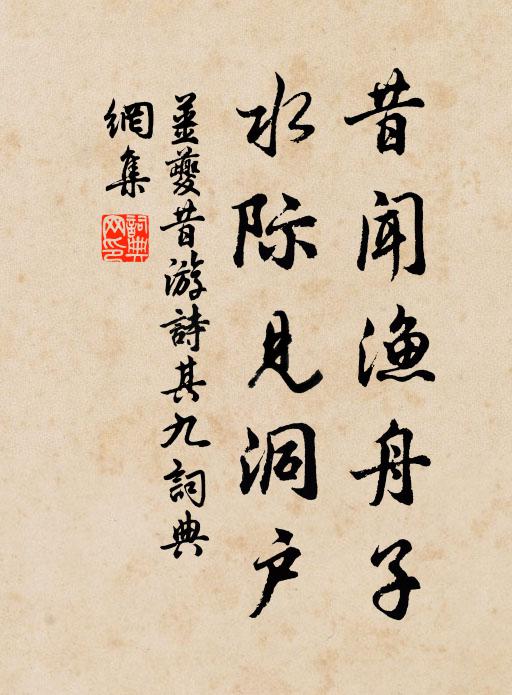 昔闻渔舟子
水际见洞户
姜夔昔游詩其九詞典
網集
詞典网印